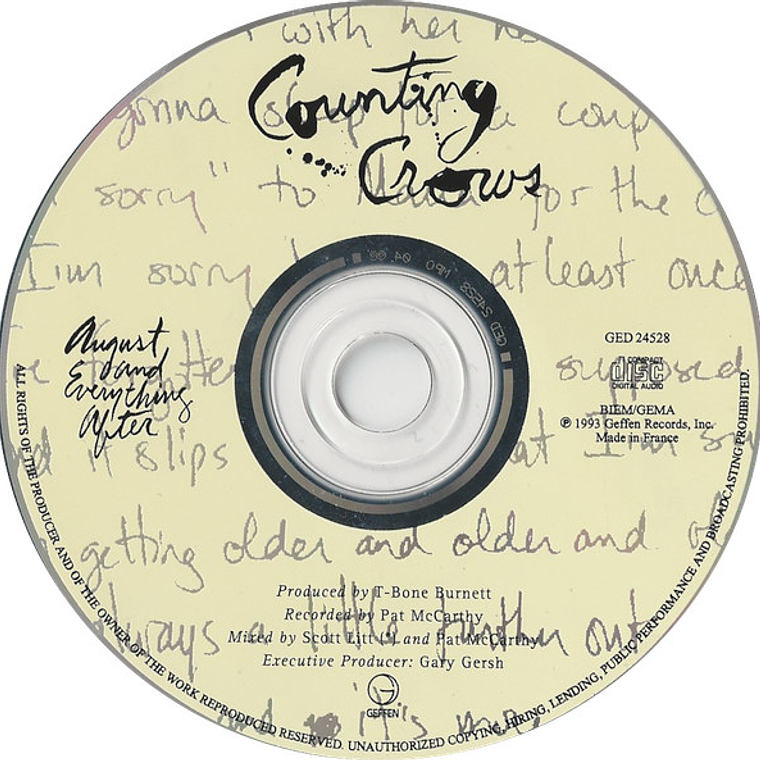 with her
Counting
gonna for a coup
Crows
sorry" to Maria for the
I'm sorry at least once
August
and
Everything
After
GED 24528
COMPACT
disc
DIGITAL AUDIO
supposed
BIEM/GEMA
℗ 1993 Geffen Records, Inc.
Made in France
it slips at I'm
getting older and older and
Produced by T-Bone Burnett
Recorded by Pat McCarthy
always a little further out
Mixed by Scott Litt (*) and Pat McCarthy
Executive Producer: Gary Gersh
GEFFEN
and it's
ALL RIGHTS OF THE PRODUCER AND OF THE OWNER OF THE WORK REPRODUCED RESERVED. UNAUTHORIZED COPYING, HIRING, LENDING, PUBLIC PERFORMANCE AND BROADCASTING PROHIBITED.
GED 24528 MPO